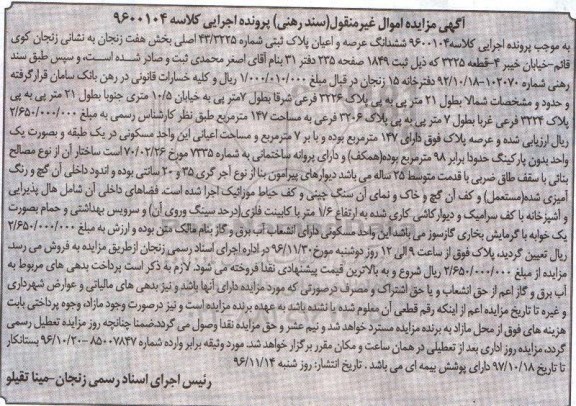 آگهی مزایده اموال غیرمنقول(سند رهنی) پرونده اجرایی کلاسه ۹۶۰۰۱۰۴
به موجب پرونده اجرایی کلاسه۹۶۰۰۱۰۴ ششدانگ عرصه و اعیان پلاک ثبتی شماره ۴۳/۳۲۲۵ اصلی بخش هفت زنجان به نشانی زنجان کوی
قائم-خیابان خیبر ۴-قطعه ۳۲۲۵ که ذیل ثبت ۱۸۴۹ صفحه ۲۳۵ دفتر ۳۱ بنام آقای اصغر محمدی ثبت و صادر شده است، و سپس طبق سند
رهنی شماره ۱۰۲۰۷۰-۹۲/۱۰/۱۸ دفترخانه ۱۵ زنجان در قبال مبلغ ۱/۰۰۰/۰۱۰/۰۰۰ ریال و کلیه خسارات قانونی در رهن بانک سامان قرارگرفته
و حدود و مشخصات شمالا بطول ۲۱ متر پی به پی پلاک ۳۲۲۶ فرعی شرقا بطول ۷متر پی به خیابان ۱۰/۵ متری جنوبا بطول ۲۱ متر پی به پی
پلاک ۳۲۲۴ فرعی غربا بطول ۷ متر پی به پی پلاک ۳۲۰۶ فرعی به مساحت ۱۴۷ مترمربع طبق نظر کارشناس رسمی به مبلغ ۲/۶۵۰/۰۰۰/۰۰۰
ریال ارزیابی شده و عرصه پلاک فوق دارای ۱۴۷ مترمربع بوده و با بر ۷ مترمربع و مساحت اعیانی این واحد مسکونی در یک طبقه و بصورت یک
واحد بدون پارکینگ حدودا برابر ۹۸ مترمربع بوده(همکف) و دارای پروانه ساختمانی به شماره ۷۳۳۵ مورخ ۷۰/۰۲/۲۶ است ساختار آن از نوع مصالح
بنائی با سقف طاق ضربی با قدمت متوسط ۲۵ ساله می باشد دیوارهای پیرامون بنا از نوع آجر گری ۳۵ و ۲۰ سانتی بوده و اندود داخلی آن گچ و رنگ
آمیزی شده(مستعمل) و کف آن گچ و خاک و نمای آن سنگ چینی و کف حیاط موزائیک اجرا شده است. فضاهای داخلی آن شامل هال پذیرایی
و آشپزخانه با کف سرامیک و دیوارکاشی کاری شده به ارتفاع ۱/۶ متر با کابینت فلزی(درحد سینگ وروی آن) و سرویس بهداشتی و حمام بصورت
یک خوابه با گرمایش بخاری گازسوز می باشد این واحد مسکونی دارای انشعاب آب برق و گاز بنام مالک متن بوده و ارزش به مبلغ ۲/۶۵۰/۰۰۰/۰۰۰
ریال تعیین گردید پلاک فوق از ساعت ۹ الی ۱۲ روز دوشنبه مورخ۹۶/۱۱/۳۰ در اداره اجرای اسناد رسمی زنجان ازطریق مزایده به فروش می رسد
مزایده از مبلغ ۲/۶۵۰/۰۰۰/۰۰۰ ریال شروع و به بالاترین قیمت پیشنهادی نقدا فروخته می شود. لازم به ذکر است پرداخت بدهی های مربوط به
آب برق و گاز اعم از حق انشعاب و یا حق اشتراک و مصرف درصورتی که مورد مزایده دارای آنها باشد و نیز بدهی های مالیاتی و عوارض شهرداری
و غیره تا تاریخ مزایده اعم از اینکه رقم قطعی آن معلوم شده یا نشده باشد به عهده برنده مزایده است و نیز درصورت وجود مازاد، وجوه پرداختی بابت
هزینه های فوق از محل مازاد به برنده مزایده مسترد خواهد شد و نیم عشر و حق مزایده نقدا وصول می گردد.ضمنا چنانچه روز مزایده تعطیل رسمی
گردد، مزایده روز اداری بعد از تعطیلی در همان ساعت و مکان مقرر برگزار خواهد شد. مورد وثیقه برابر وارده شماره ۸۵۰۰۷۸۴۷-۹۶/۱۰/۲۰ بستانکار
تا تاریخ ۹۷/۱۰/۱۸ دارای پوشش بیمه ای می باشد . تاریخ انتشار: روز شنبه ۹۶/۱۱/۱۴
رئیس اجرای اسناد رسمی زنجان-مینا تقیلو